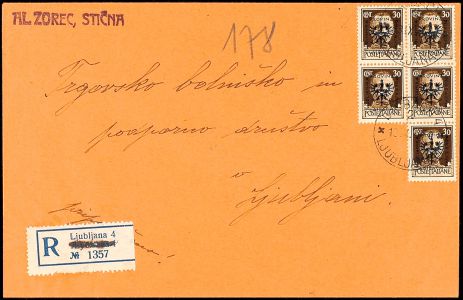 AL. ZOREC, STIČNA
178
Trgovsko bolniško in
podporno društvo
v
Ljubljani
R
Ljubljana 4
№ 1357
30
POSTE ITALIANE
30
POSTE ITALIANE
30
POSTE ITALIANE
30
POSTE ITALIANE
30
POSTE ITALIANE
LJUBLJANA